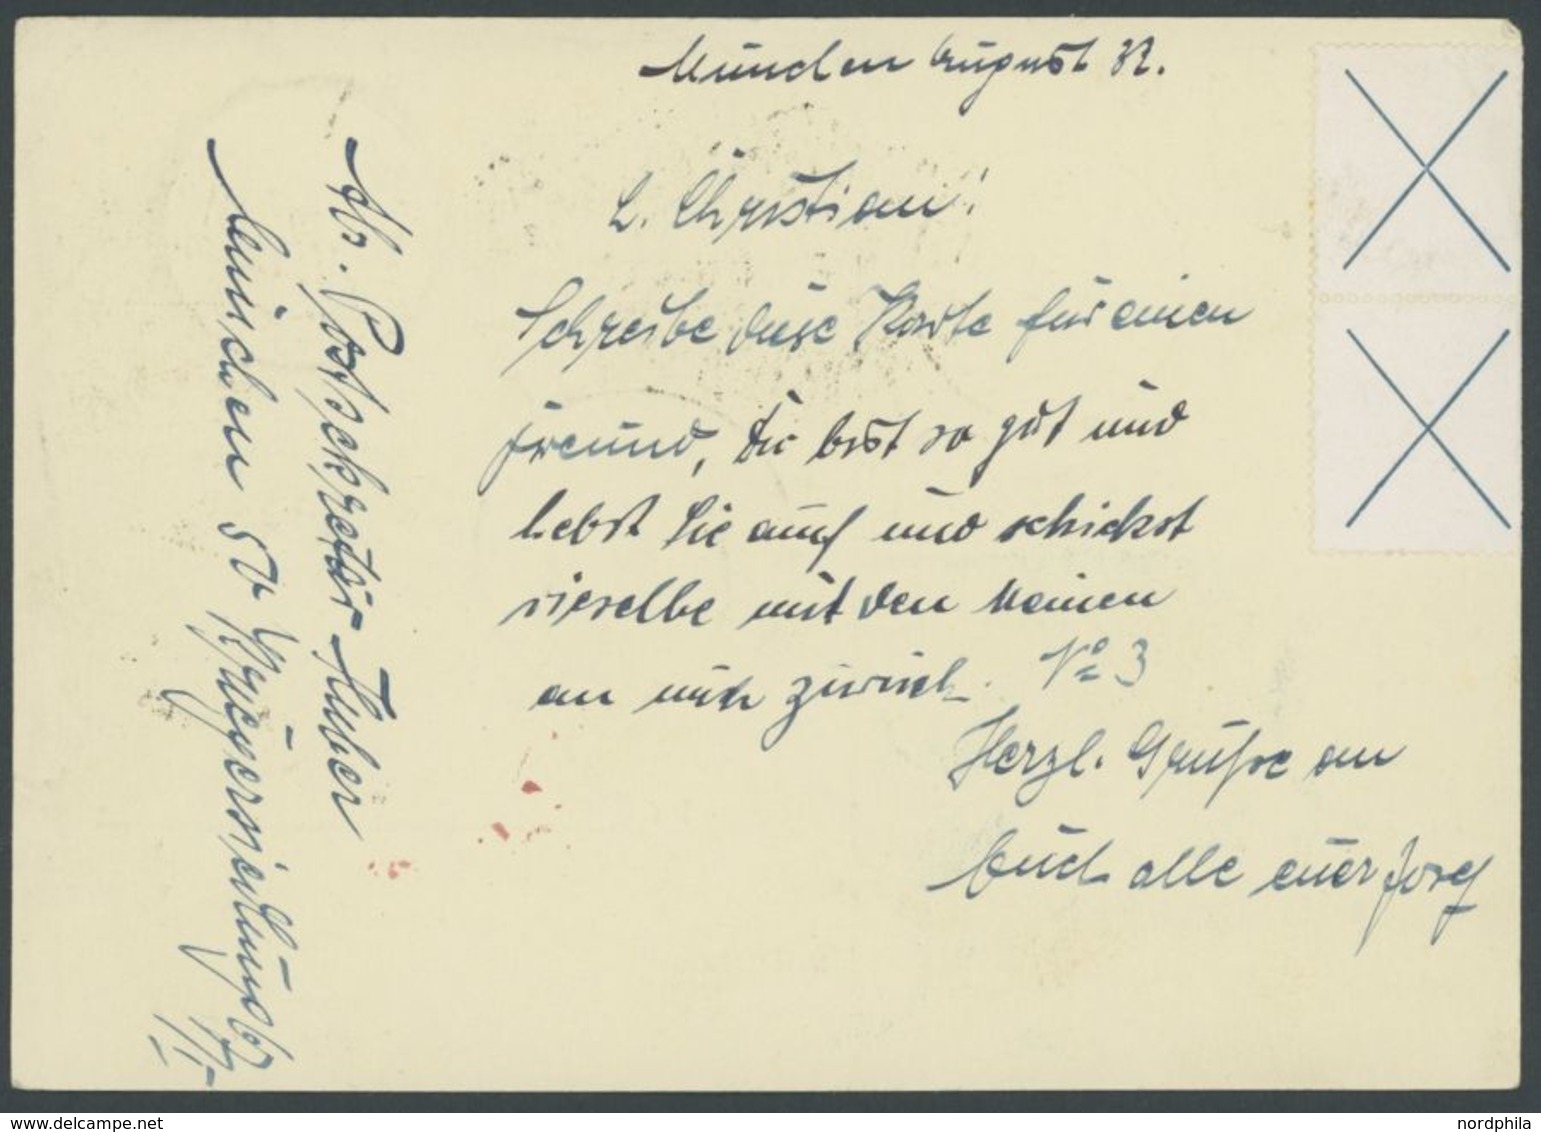 München August 32.
L. Christian!
Schreibe diese Karte für einen
Freund, Du bist so gut und
liebst Sie auch und schickst
dieselbe mit den meinen
an mich zurück. No 3
Herzl. Grüße an
Euch alle euer Josef
Hr. Postsekretär Huber
München 50
nordphila